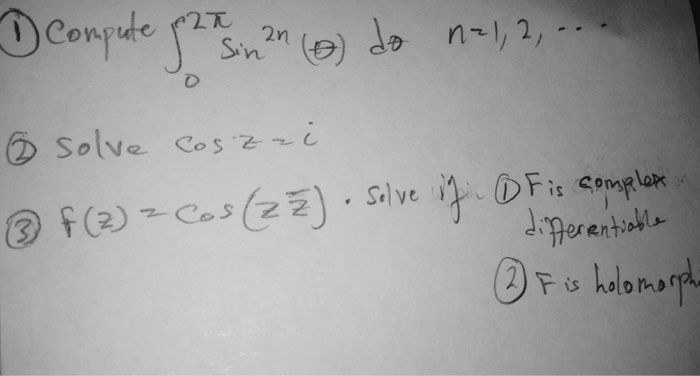 ① Compute ∫₀^2π Sin^2n (θ) dθ n=1, 2, ...
② Solve Cos z = i
③ f(z) = Cos (z z̄) . Solve if ① F is complex
differentiable
② F is holomorph